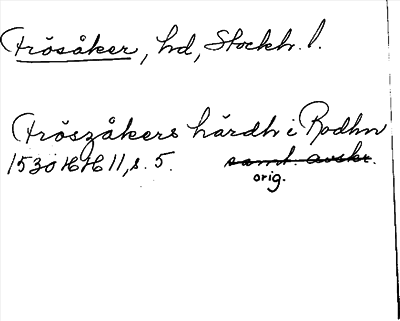 Frösåker, hd, Stockh. l.
Fröszåkers hårdh i Rodhn
1530 HH 11, s. 5. samt. avskr.
orig.